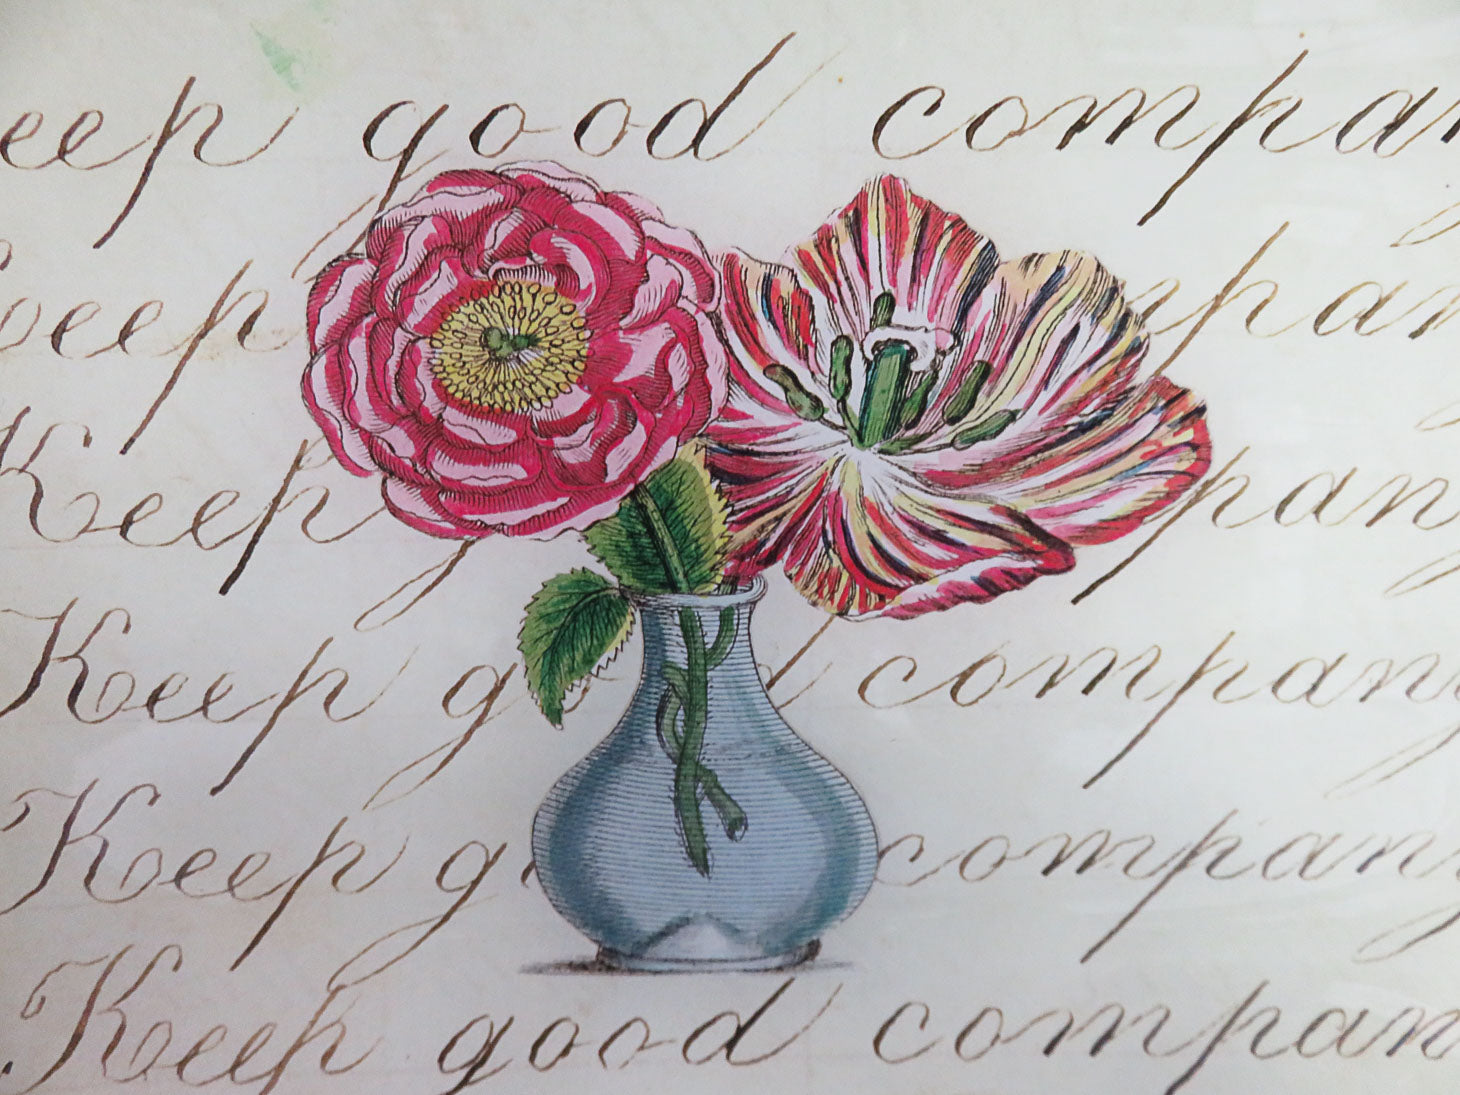 eep good compan
Keep mpany
Keep pany
Keep g d company
Keep g company
Keep good compan